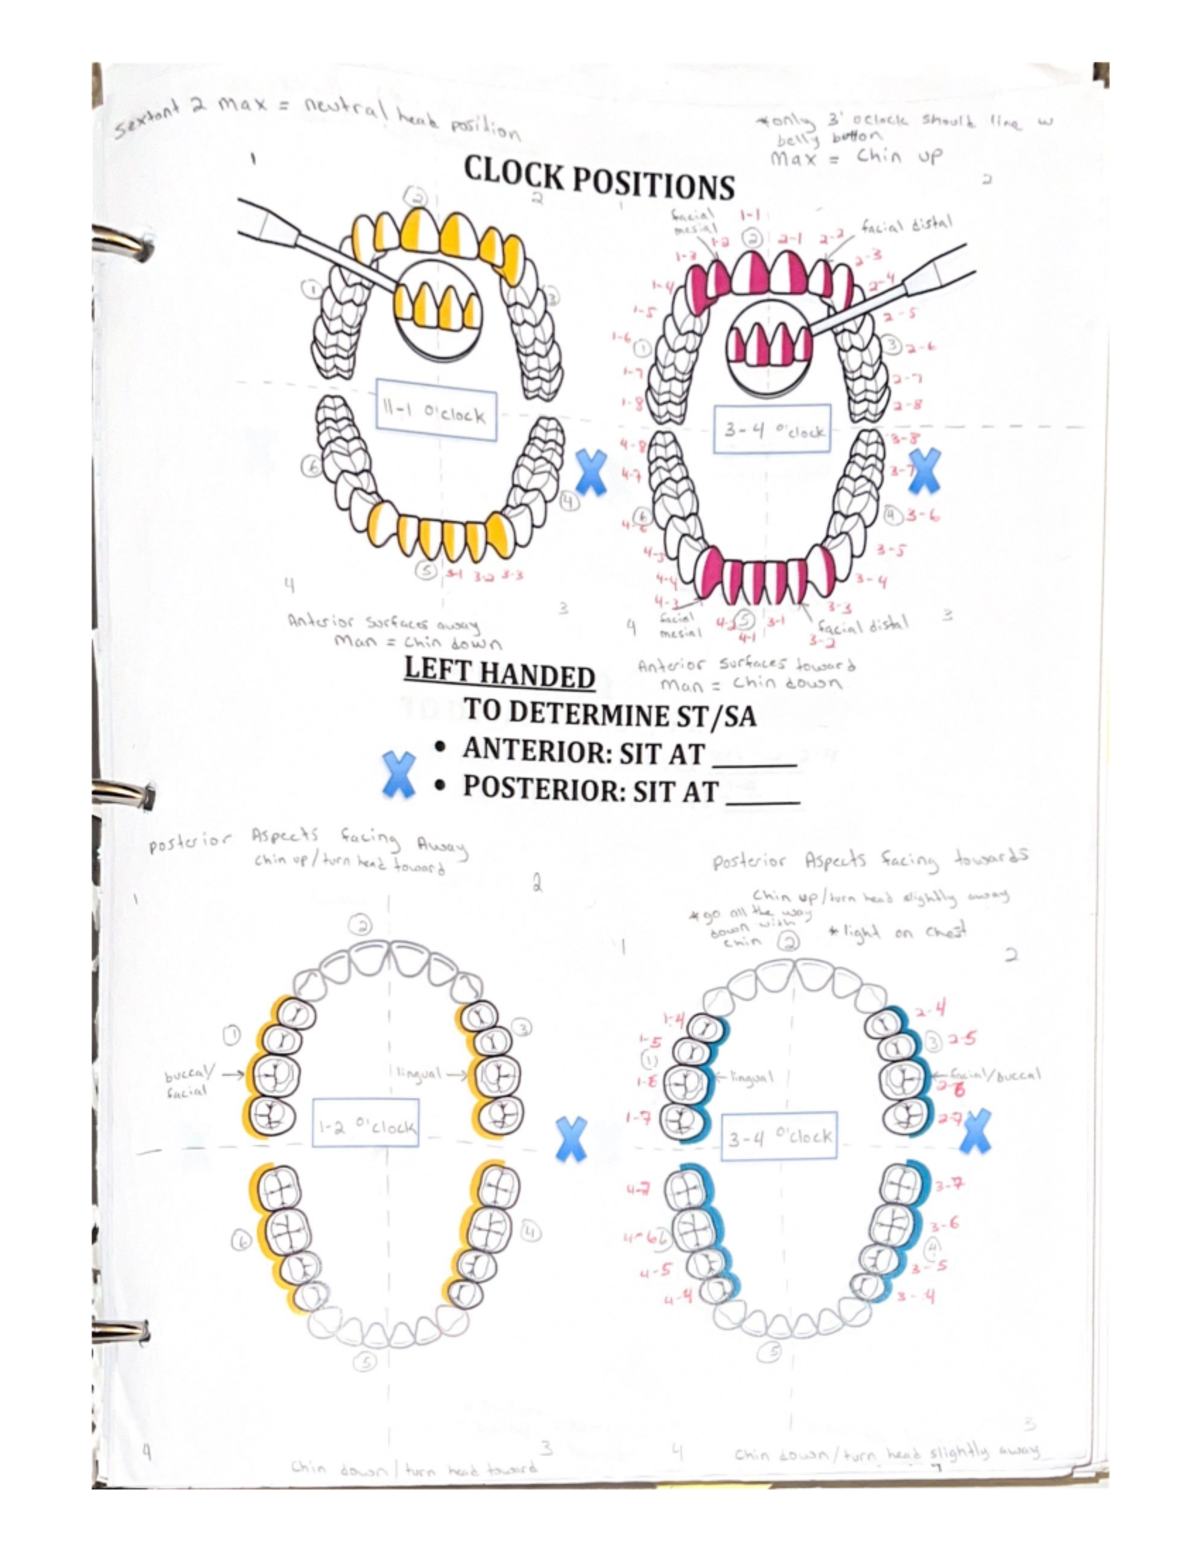 Sextant 2 Max = neutral head position
*only 3' oclock should line w
belly button
Max = Chin up
1
2
CLOCK POSITIONS
2
2
1
facial
mesial
1-1
facial distal
1-3
1-2
2
2-1
2-2
2-3
1
3
1-4
2-4
1-5
2-5
1-6
1
3
2-6
1-7
2-7
1-8
2-8
11-1 o'clock
3-4 o'clock
4-8
3-8
6
4-7
3-7
X
X
4
6
4-6
4
3-6
4-5
3-5
5
3-1
3-2
3-3
4-4
3-4
4
3
4-3
3-3
3
4
facial
mesial
4-2
5
3-1
4-1
facial distal
3-2
Anterior Surfaces away
Man = Chin down
Anterior Surfaces toward
Man = Chin down
LEFT HANDED
TO DETERMINE ST/SA
• ANTERIOR: SIT AT ______
X
• POSTERIOR: SIT AT _____
posterior Aspects facing Away
Chin up/turn head toward
Posterior Aspects facing towards
Chin up/turn head slightly away
*go all the way
down with
chin
*light on chest
1
2
1
2
2
2
1
3
1-4
2-4
1-5
3
2-5
1
buccal/
facial
lingual
1-6
lingual
facial/buccal
2-6
1-7
2-7
1-2 o'clock
X
3-4 o'clock
X
4-7
3-7
6
4
4-6
6
3-6
4
4-5
3-5
4-4
3-4
5
5
4
3
4
3
Chin down/turn head toward
Chin down/turn head slightly away
7